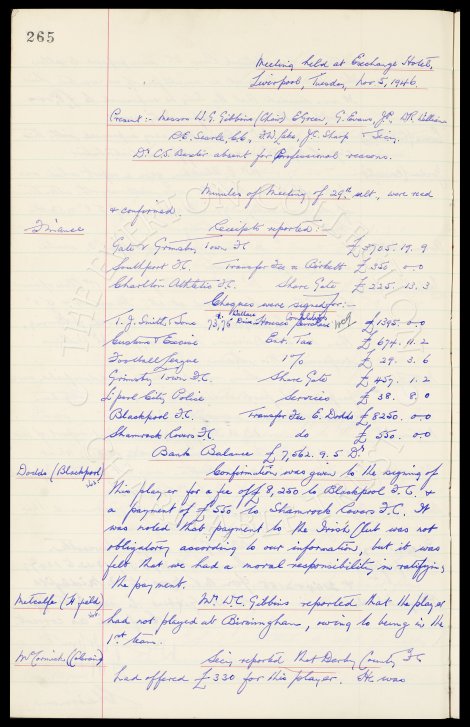 265
Meeting held at Exchange Hotel,
Liverpool, Tuesday, Nov. 5, 1946.
Present:- Messrs W. C. Gibbins (Chair) E. Green, G. Evans, J.P., W. R. Williams
R. E. Searle, F. W. Lake, J. C. Sharp & Secy.
Dr. C. S. Baxter absent for Professional reasons.
Minutes of Meeting of 29th ult., were read
& confirmed.
Finance
Receipts reported:-
Gate v Grimsby Town F.C. £3705. 17. 9
Southport F.C. Transfer Fee R. Birkett £350. 0. 0
Charlton Athletic F.C. Share Gate £225. 13. 3
Cheques were signed for:-
T. J. Smith & Sons 73,75 Wallace Drive Houses Completion purchase £1395. 0. 0
Customs & Excise Ent. Tax £674. 11. 2
Football League 1% £29. 3. 6
Grimsby Town F.C. Share Gate £457. 1. 2
L'pool City Police Services £38. 8. 0
Blackpool F.C. Transfer Fee E. Dodds £8250. 0. 0
Shamrock Rovers F.C. do £550. 0. 0
Bank Balance £7,562. 9. 5 Dr
Dodds (Blackpool)
Confirmation was given to the signing of
this player for a fee of £8,250 to Blackpool F.C. &
a payment of £550 to Shamrock Rovers F.C. It
was noted that payment to the Irish Club was not
obligatory according to our information, but it was
felt that we had a moral responsibility in ratifying
the payment.
Metcalfe (H'field)
Mr. W. C. Gibbins reported that the player
had not played at Birmingham, owing to being in the
1st team.
McCormick (Clering)
Secy reported that Derby County F.C.
had offered £330 for this player. He was